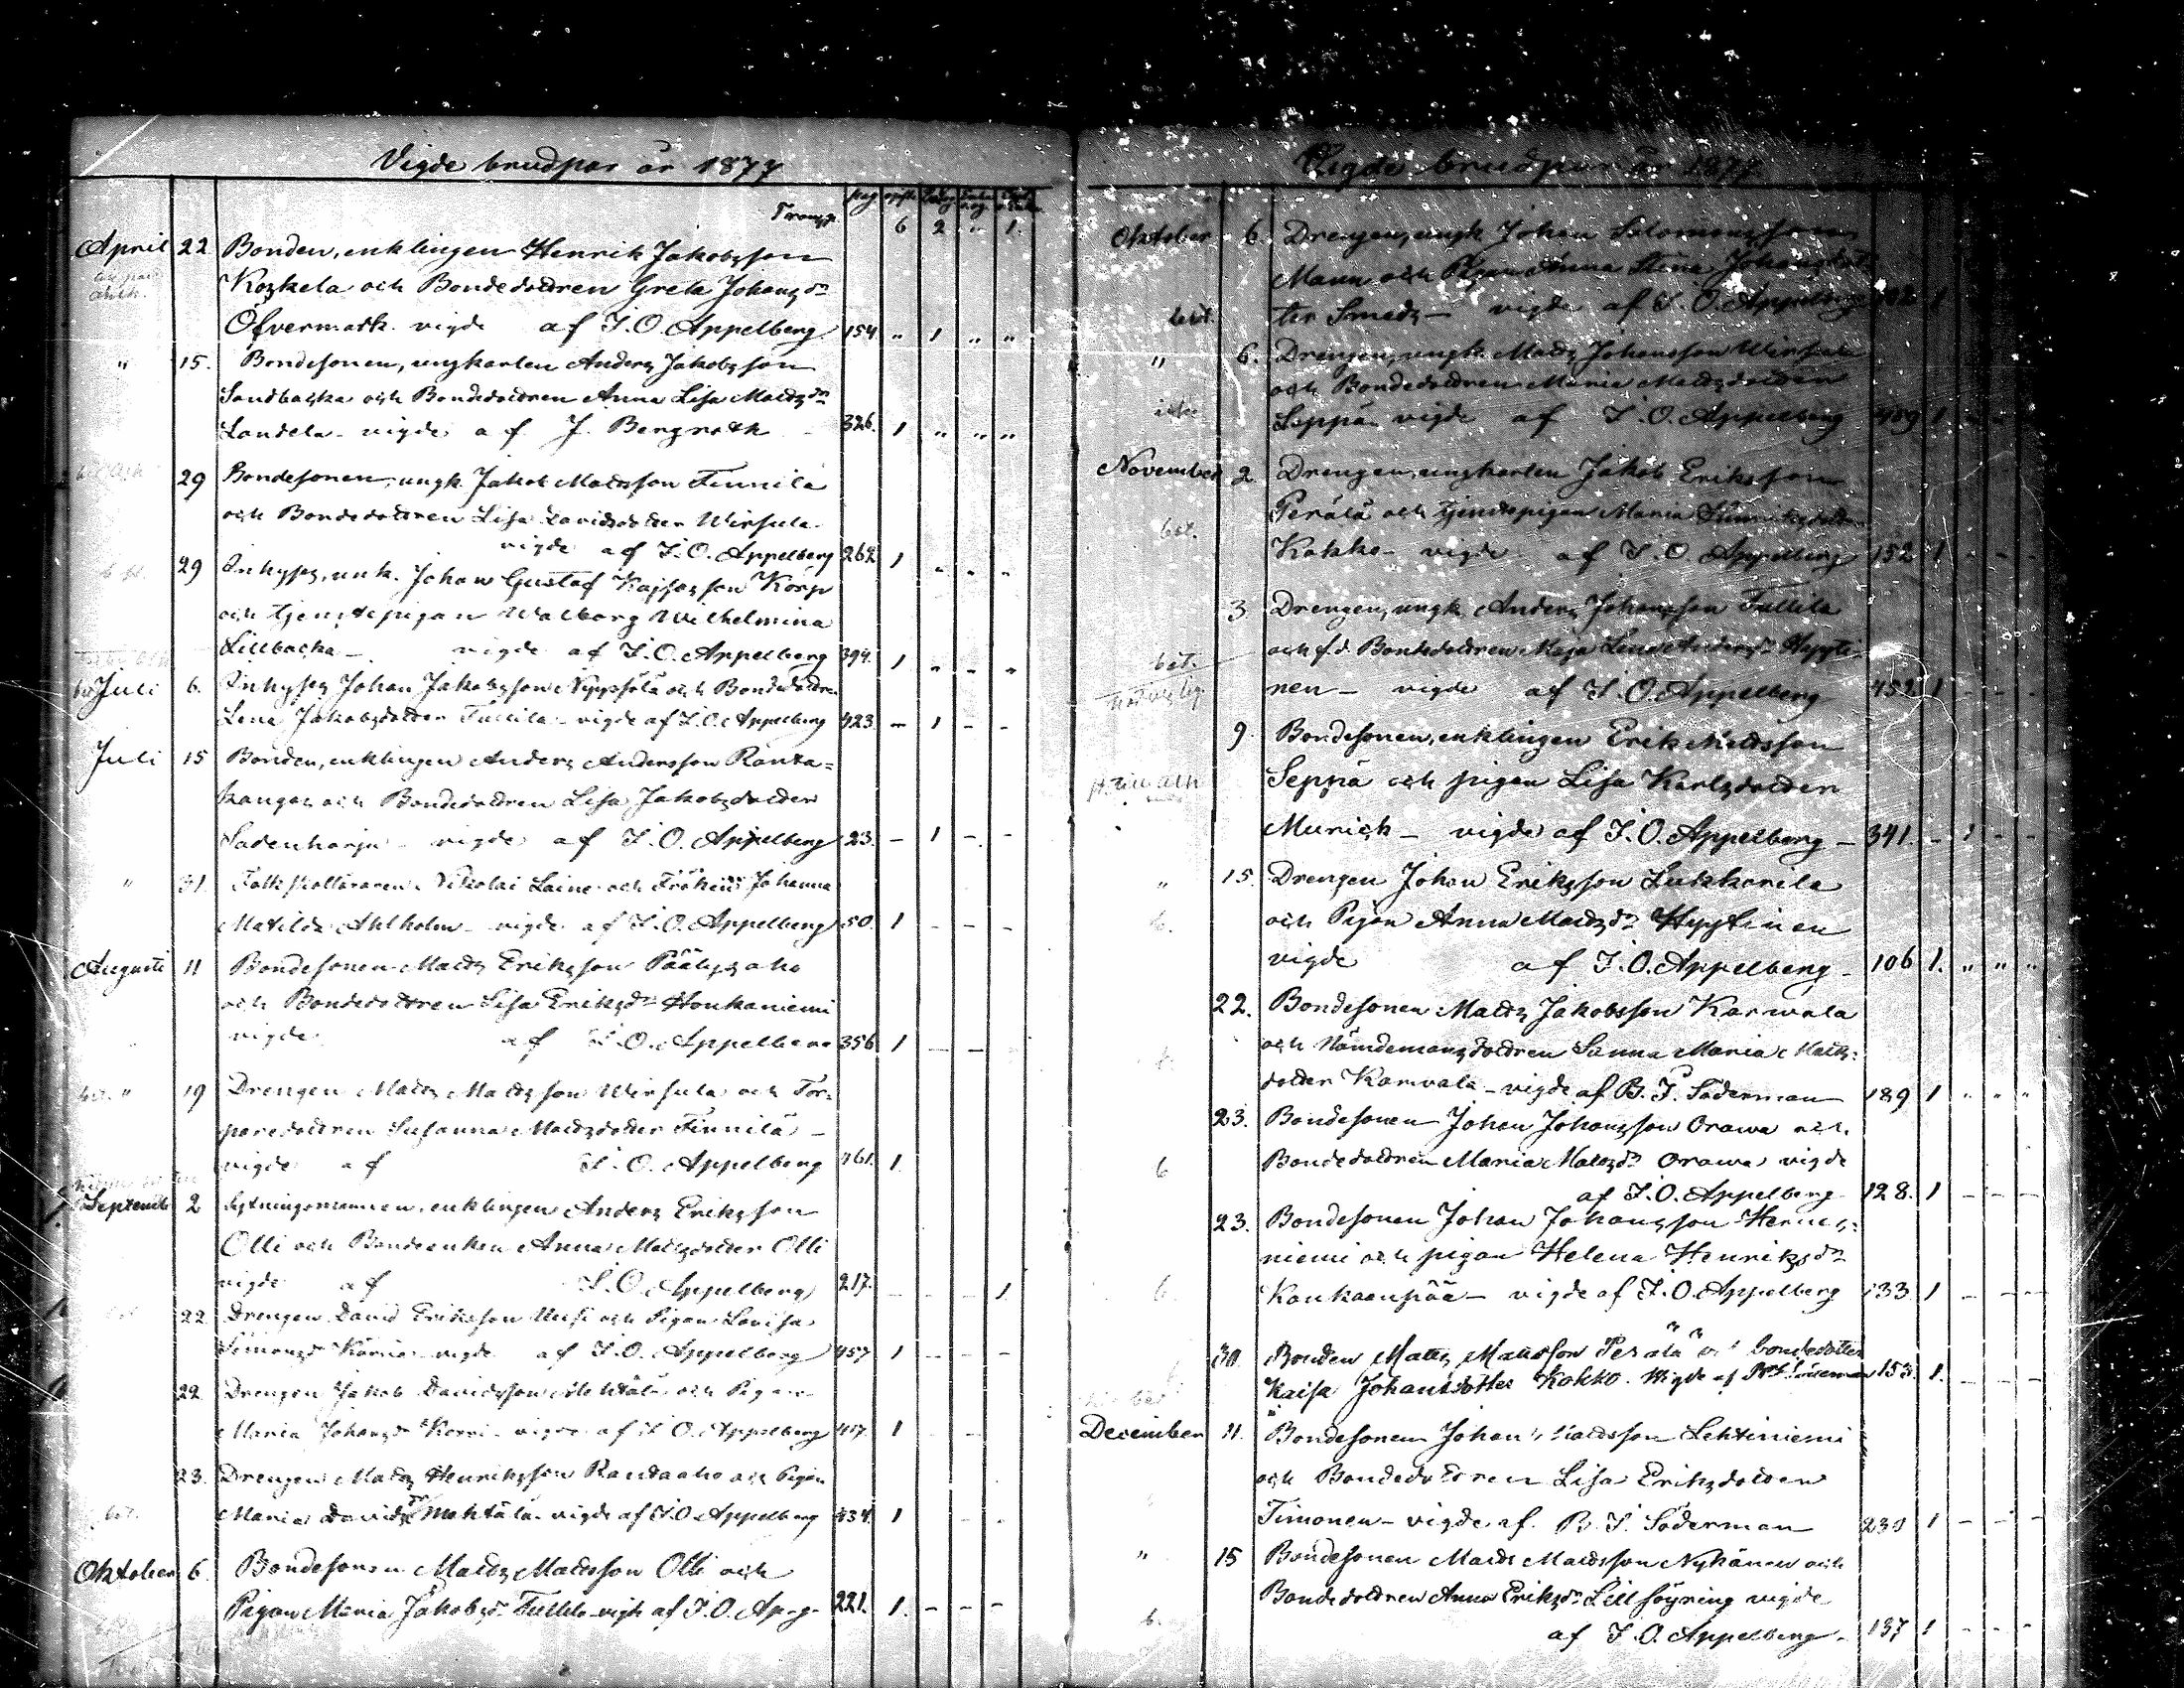 Vigde brudpar år 1877
Transp. 6 2 " 1.
April 22 Bonden, enklingen Henrik Jakobsson
Koskela och Bondedottren Greta Johansdr
Öfvermark vigde af I. O. Appelberg 154 " 1 " "
" 15. Bondesonen, ungkarlen Anders Jakobsson
Sandbacka och Bondedottren Anna Lisa Mattsdr
Landela - vigde af J. Bergroth 326. 1 " " "
29 Bondesonen, ungk. Jakob Mattsson Finnilä
och Bondedottren Lisa Davidsdotter Wirsula
vigde af I. O. Appelberg 262 1 " " "
29 Inhyses, unk. Johan Gustaf Kajsasson Korp
och tjenstepigan Walborg Wilhelmina
Lillbacka - vigde af I. O. Appelberg 394. 1 " " "
Juli 6. Inhyses Johan Jakobsson Nyppsölä och Bondedottren
Lena Jakobsdotter Tullila - vigde af I. O. Appelberg 423 - 1 - -
Juli 15 Bonden, enklingen Anders Andersson Ranta=
kangas och Bondedottren Lisa Jakobsdotter
Sadenharju - vigde af I. O. Appelberg 23. - 1 - -
" 31. Folkskolläraren Nikolai Laine och Fröken Johanna
Matilda Ahlholm - vigde af I. O. Appelberg 50. 1 - - -
Augusti 11 Bondesonen Matts Eriksson Pääbysaho
och Bondedottren Lisa Eriksdr Honkaniemi
vigde af I. O. Appelberg 356 1 - -
" 19 Drengen Matts Mattsson Wirsula och Tor-
paredottren Susanna Mattsdotter Finnilä -
vigde af I. O. Appelberg 461. 1
September 2 enklingen Anders Eriksson
Olli och Bondeenkan Anna Mattsdotter Olli
vigde af I. O. Appelberg 217. - - - 1
22 Drengen David Eriksson och Pigan Lovisa
Simonsdr vigde af I. O. Appelberg 457 1 - - -
22 Drengen Jakob Davidsson och Pigan
Maria Johansdr - vigde af I. O. Appelberg 1 - -
23. Drengen Matts Henriksson Randaaho och Pigan
bet. Maria Davidsdr Mektälä - vigde af I. O. Appelberg 434. 1 - -
Oktober 6 Bondesonen Matts Mattsson Olli och
Pigan Maria Jakobsdr Tullila - vigde af I. O. Ap-g- 221. 1. - - -
Vigde brudpar år 1877.
Oktober 6. Drengen, ungk. Johan Salomonsson
Mann och Pigan Anna Stina Johansdot
bet. ter Smeds - vigde af I. O. Appelberg 1
" 6. Drengen, ungk. Matts Johansson Wirsula
och Bondedottren Maria Mattsdotter
Seppä vigde af I. O. Appelberg 409 1 - -
November 2 Drengen, ungkarlen Jakob Eriksson
Perälä och tjenstepigan Maria
bet. Kokko - vigde af I. O. Appelberg 152 1 - -
3 Drengen, ungk. Anders Johansson Tullila
bet. och f.d. Bondedottren Maja Lena Andersdr Hyyti-
nen - vigde af I. O. Appelberg 452 1 - - -
9. Bondesonen, enklingen Erik Mattsson
Seppä och pigan Lisa Karlsdotter
Murick - vigde af I. O. Appelberg - 341. - 1 - -
" 15. Drengen Johan Eriksson Lukkarila
och Pigan Anna Mattsdr Hyytinen
vigde af I. O. Appelberg - 106 1. " " "
22. Bondesonen Matts Jakobsson Karvala
och Nämdemansdottren Sanna Maria Matts=
dotter Karvala - vigde af B. I. Söderman 189 1 " " "
23. Bondesonen Johan Johansson Orawa och
b Bondedottren Maria Mattsdr Orawa vigde
af I. O. Appelberg 128. 1 - - -
23. Bondesonen Johan Johansson Hernes=
niemi och pigan Helena Henriksdr
b. Kankaanpää - vigde af I. O. Appelberg 133 1 - - -
30. Bonden Matts Mattsson Perälä och bondedotter
Kaisa Johansdotter Kokko. Wigde af B. I. Söderman 153 1. - -
December 11. Bondesonen Johan Mattsson Lehtiniemi
och Bondedottren Lisa Eriksdotter
Timonen - vigde af B. I. Söderman 230 1 - - -
" 15 Bondesonen Matts Mattsson Nykänen och
Bondedottren Anna Eriksdr Lillsöyring vigde
b. af I. O. Appelberg - 137 1 - - -